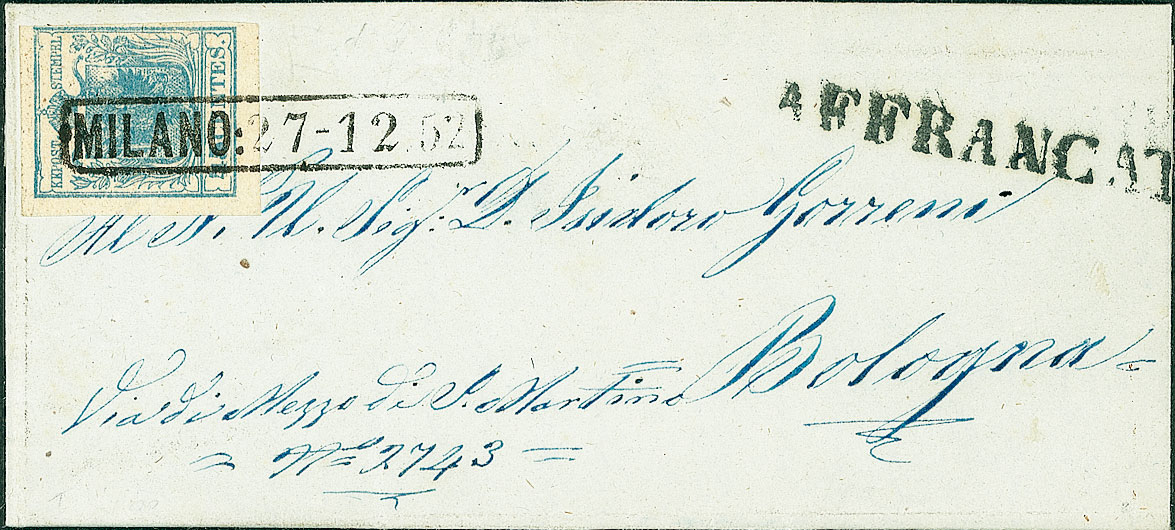 KKPOST-STEMPEL
CENTES.
MILANO: 27-12.52
AFFRANCAT
Al N. U. Sigr. D. Isidoro Gorreni
Bologna
Via di Mezzo di S. Martino
No 2743